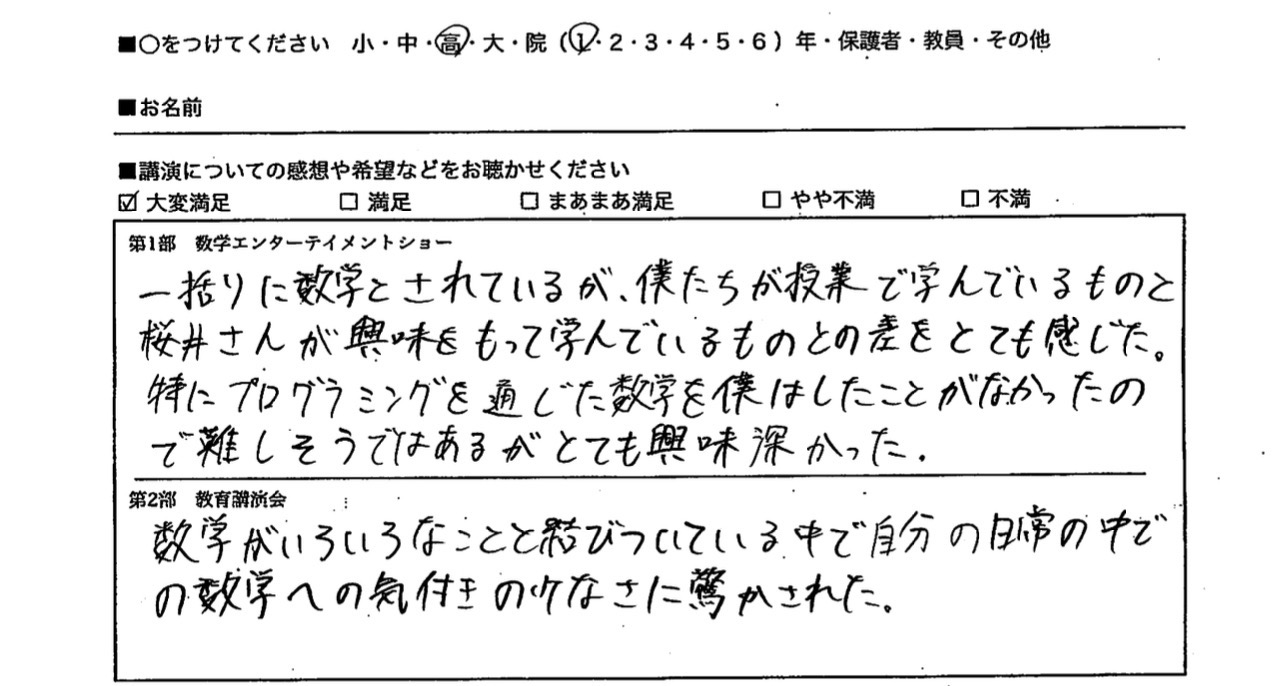 ■○をつけてください 小・中・高・大・院(1・2・3・4・5・6)年・保護者・教員・その他
■お名前
■講演についての感想や希望などをお聴かせください
☑ 大変満足 □ 満足 □ まあまあ満足 □ やや不満 □ 不満
第1部 数学エンターテイメントショー
一括りに数学とされているが、僕たちが授業で学んでいるものと
桜井さんが興味をもって学んでいるものとの差をとても感じた。
特にプログラミングを通じた数学を僕はしたことがなかったの
で難しそうではあるがとても興味深かった.
第2部 教育講演会
数学がいろいろなことと結びついている中で自分の日常の中で
の数学への気付きの少なさに驚かされた。